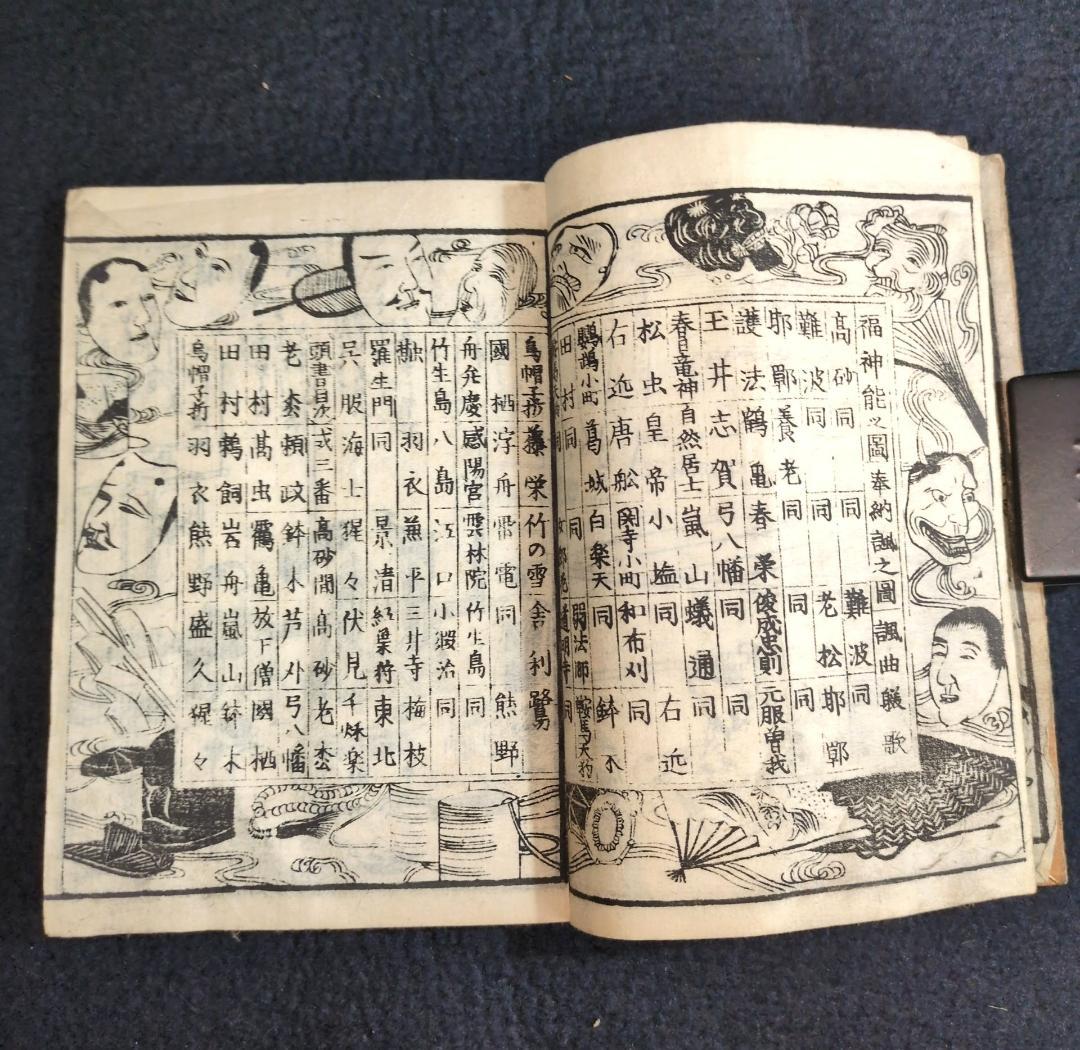 福神能之圖 奉納諷之圖 諷曲䑓歌
高砂 同 同 難波 同
難波 同 同 老松 耶鄲
耶鄲 養老 同 同 同
護法 鶴亀 春栄 俊成忠則 元服曽我
玉井 志賀 弓八幡 同 同
春日竜神 自然居士 嵐山 蟻通 同
松虫 皇帝 小塩 同 右近
右近 唐船 関寺小町 和布刈 同
鸚鵡小町 葛城 白楽天 同 鉢木
田村 同 同 弱法師 鞍馬天狗
烏帽子折 藤栄 竹の雪 舎利
國栖 浮舟 雷電 同 熊野
舟弁慶 咸陽宮 雲林院 竹生島 同
竹生島 八島 江口 小鍛冶 同
融 羽衣 兼平 三井寺 梅枝
羅生門 同 景清 紅葉狩 東北
呉服 海士 猩々 伏見 千秌楽
頭書目次 弍三番 高砂開 高砂 老枩
老枩 頼政 鉢木 芦刈 弓八幡
田村 高虫 靏亀 放下僧 國栖
田村 鵜飼 岩舟 嵐山 鉢木
烏帽子折 羽衣 熊野 盛久 猩々